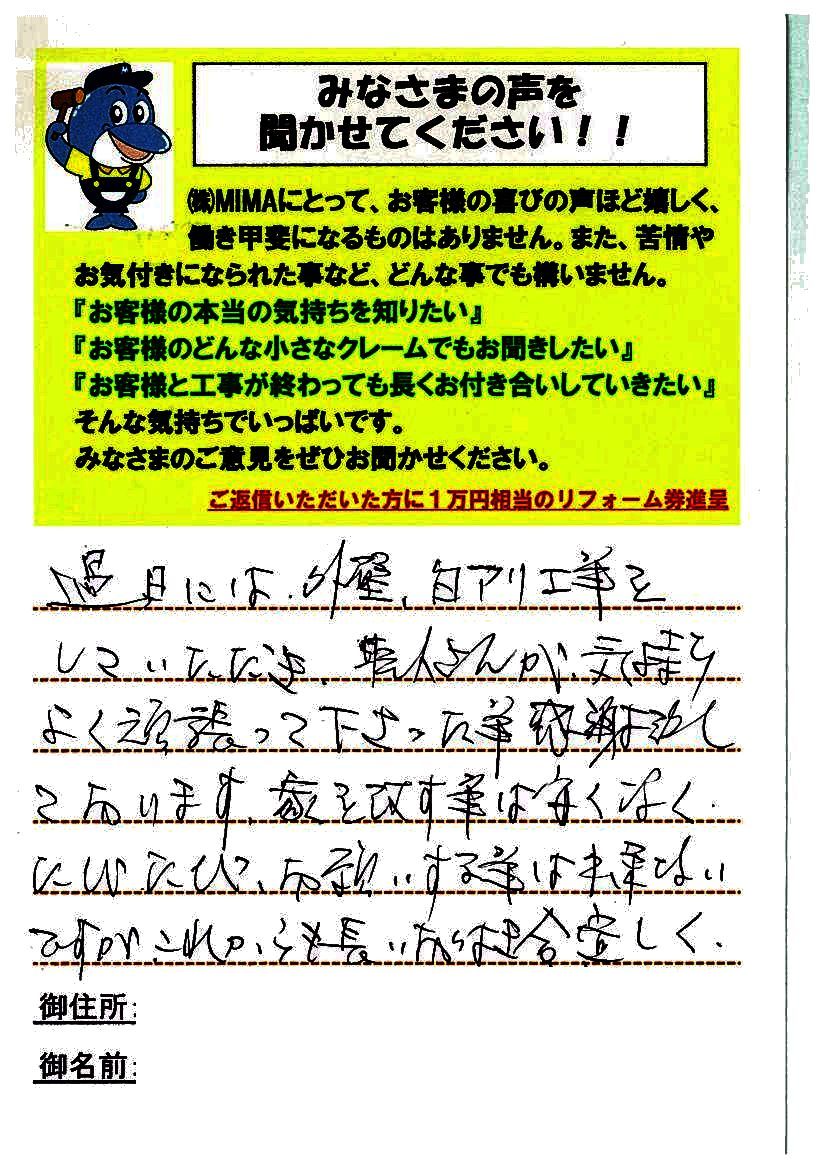 みなさまの声を
聞かせてください！！
㈱MIMAにとって、お客様の喜びの声ほど嬉しく、
働き甲斐になるものはありません。また、苦情や
お気付きになられた事など、どんな事でも構いません。
『お客様の本当の気持ちを知りたい』
『お客様のどんな小さなクレームでもお聞きしたい』
『お客様と工事が終わっても長くお付き合いしていきたい』
そんな気持ちでいっぱいです。
みなさまのご意見をぜひお聞かせください。
ご返信いただいた方に１万円相当のリフォーム券進呈
過日には、外壁、白アリ工事を
していただき、職人さんが、気持ち
よく頑張って下さった事感謝致し
ております。家を改す事は安くなく、
たびたび、お願いする事は出来ない
ですが、これからも長いお付き合宜しく、
御住所:
御名前: